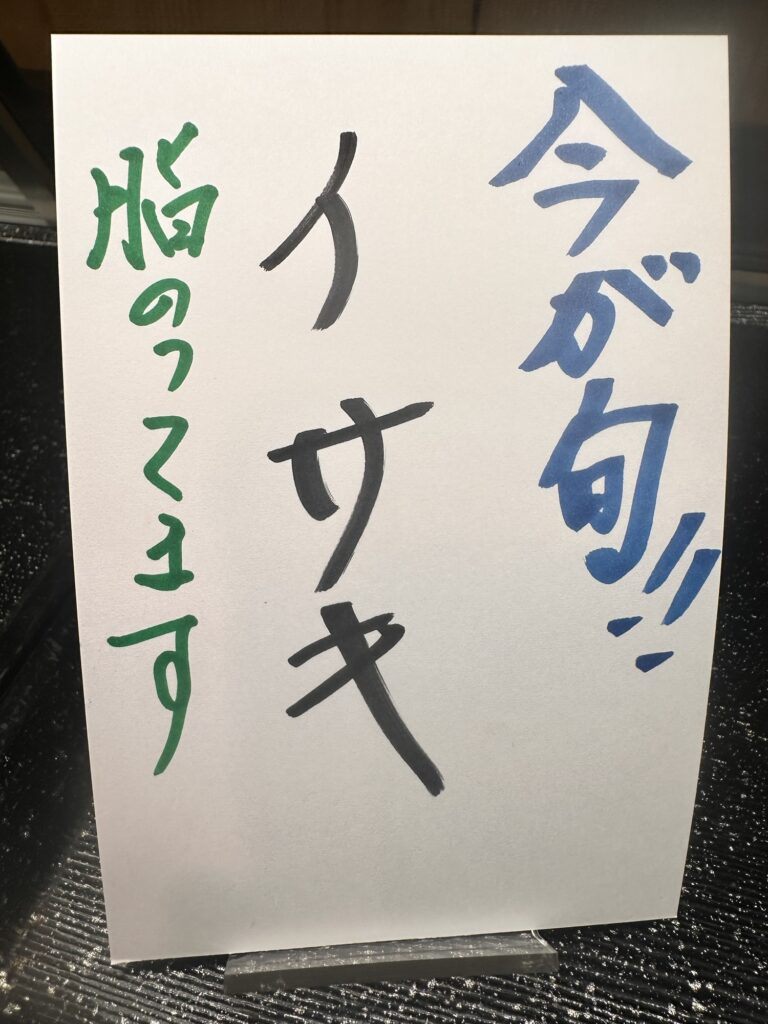 今が旬!!
イサキ
脂のってます